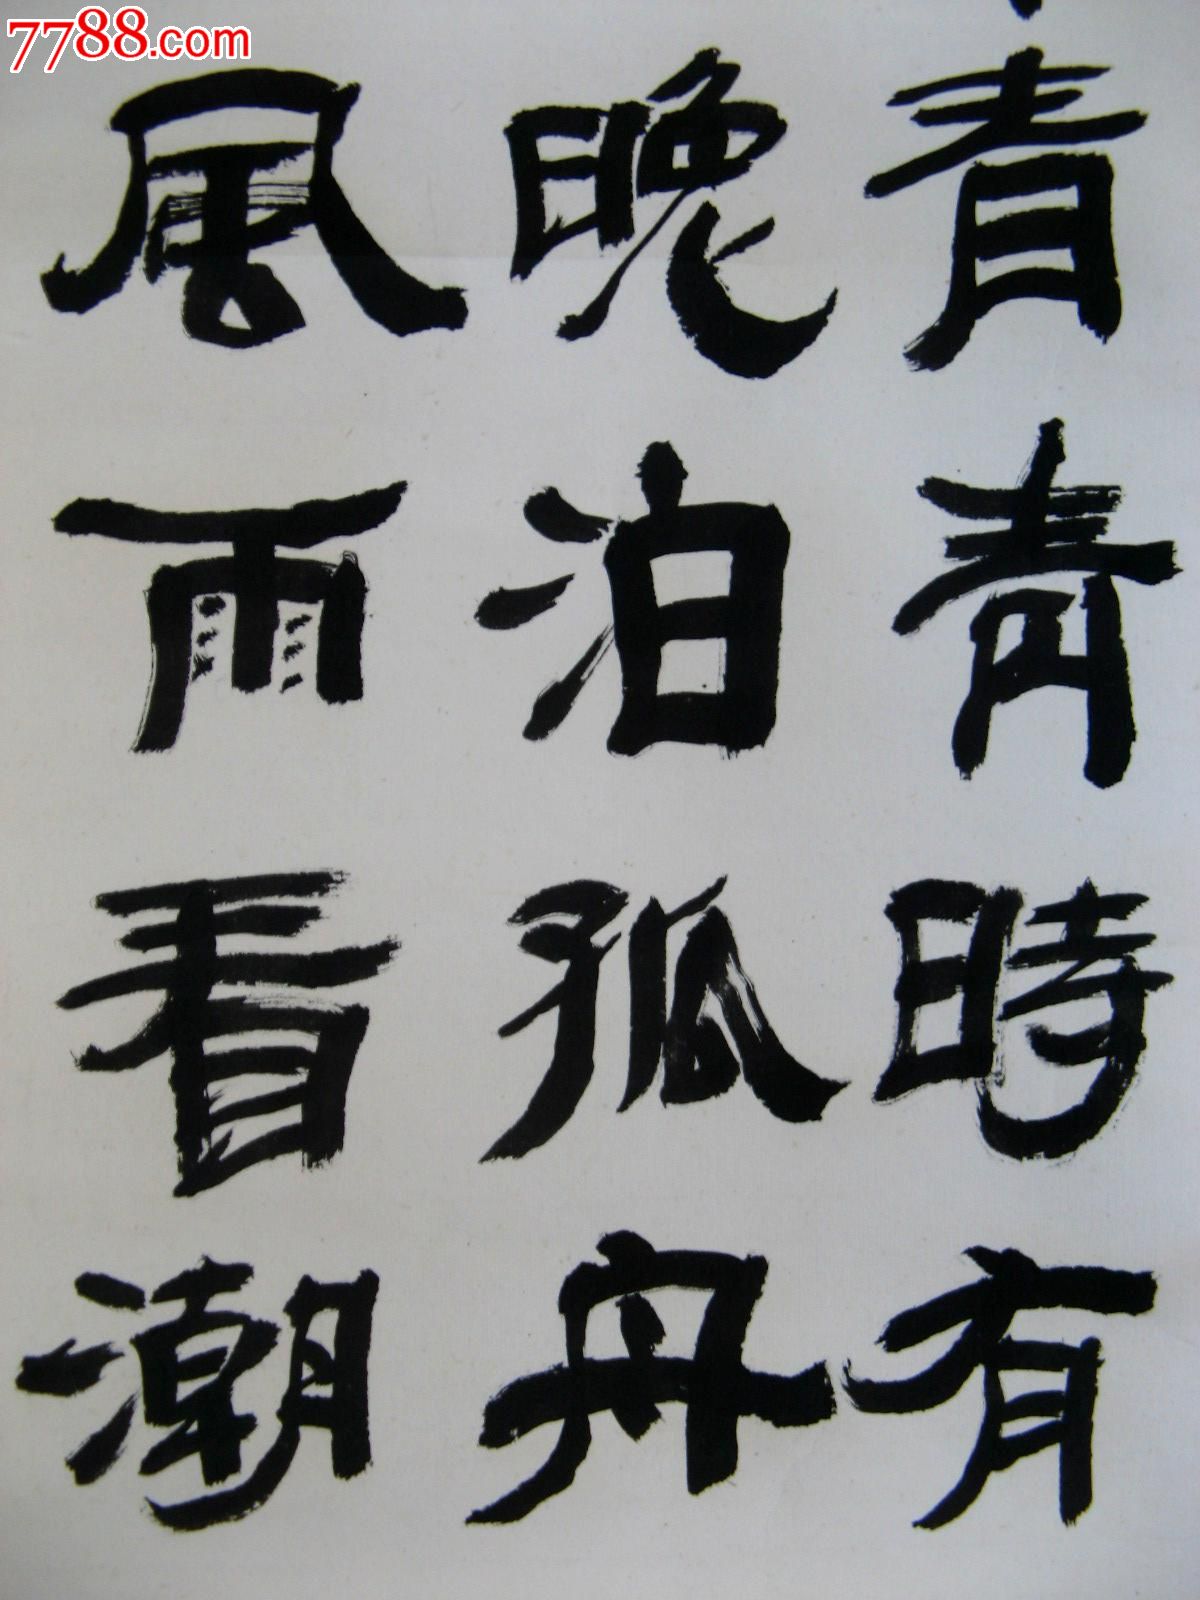 7788.com
青青時有
晚泊孤舟
風雨看潮